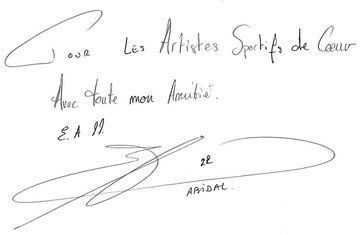 Pour Les Artistes Sportifs de Coeur
Avec toute mon Amitié.
E.A 22
22
ABIDAL